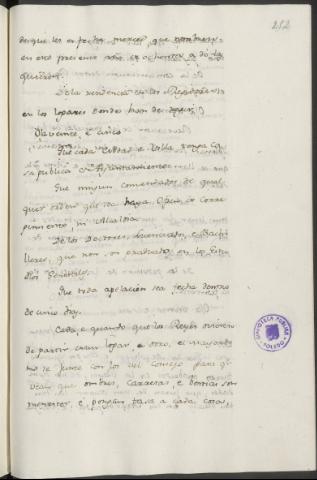 252
desque les es fecha merced que
en este presente año de ochenta a dó la
quisieren.
De la residencia en los
en los logares donde han de
Ila veinte, e cinco
Que cada Cibdad e Villa tenga Ca
sa publica de Ayuntamiento
Que ningun comendador de qual
quier orden que sea haya Oficio de Corre
gimiento, ni Alcaldia
De los Doctores, Licenciados, e Bachi
lleres, que non son graduados en los Estu
dios Generales.
Que toda apelacion sea fecha dentro
de cinco dias
Cada, e quando que los Reyes ovieren
de partir de un logar a otro, el mayordo
mo se junte con los del Consejo para q.
vean que ombres, carretas, e bestias son
menester, e pongan tasa a cada cosa,
BIBLIOTECA PUBLICA
TOLEDO